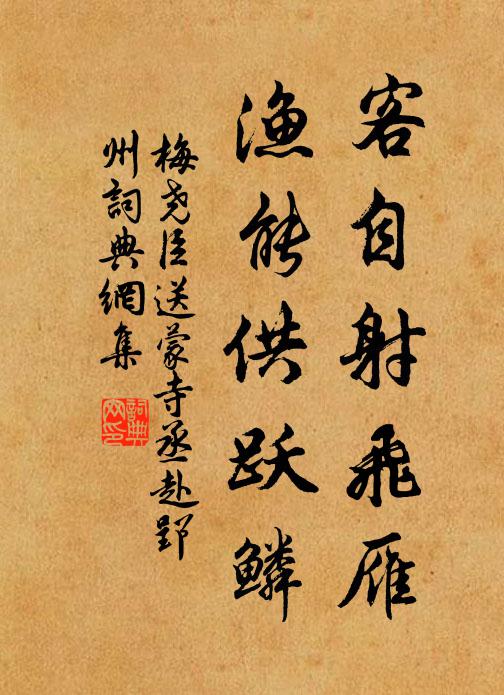 客自射飛雁
渔能供跃鳞
梅尧臣送蒙寺丞赴郢
州詞典網集
詞典
网印